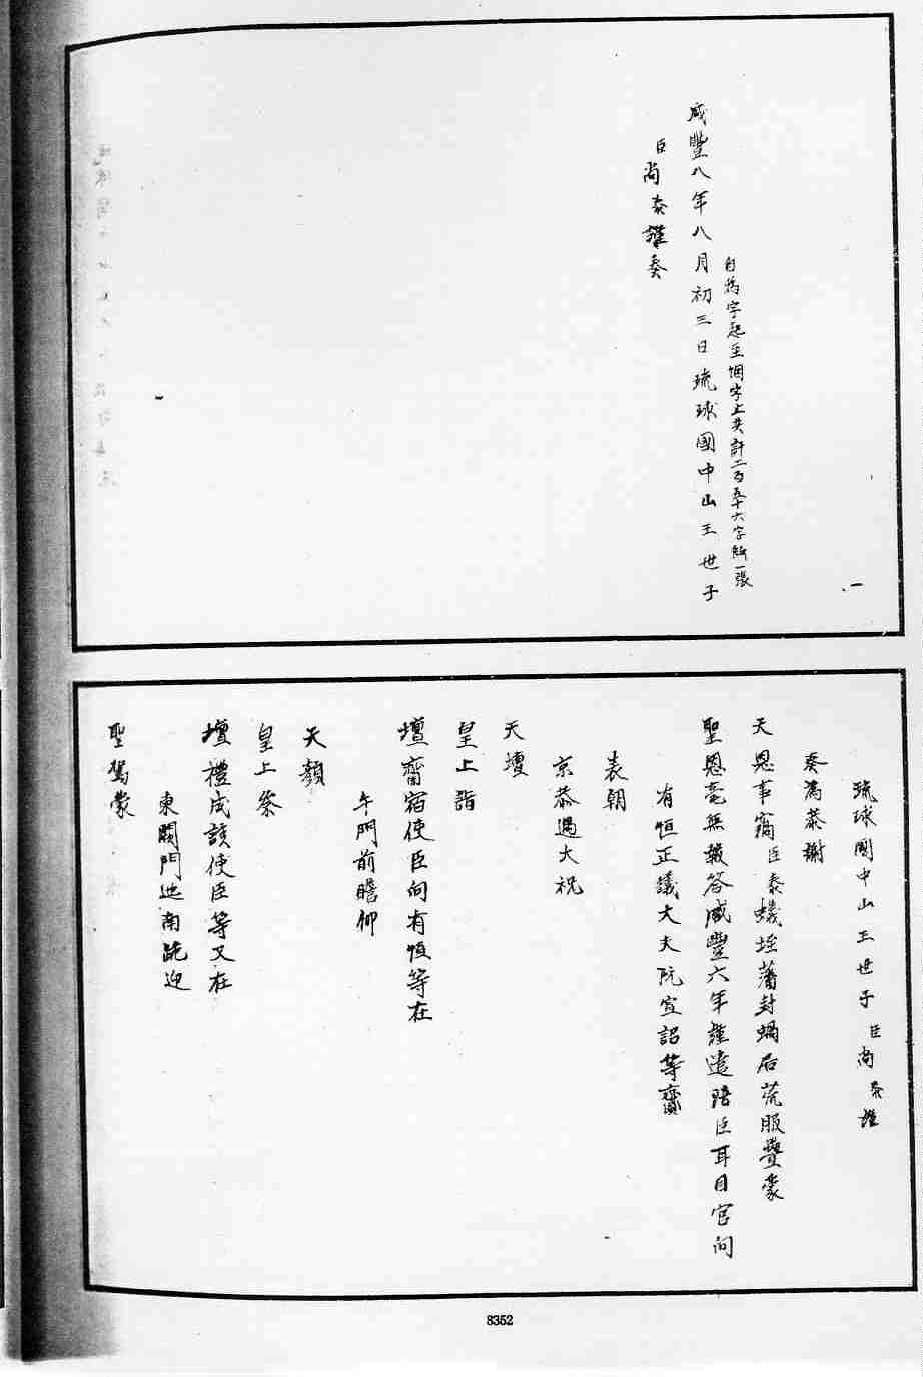 自為字起至悃字上共計二百五十六字紙一張
咸豐八年八月初三日琉球國中山王世子
臣尚泰謹奏
琉球國中山王世子臣尚泰謹
奏為恭謝
天恩事竊臣泰蟻垤藩封蝸居荒服疊蒙
聖恩毫無報答咸豐六年謹遣陪臣耳目官向
有恒正議大夫阮宣詔等齎
表朝
京恭遇大祝
天壇
皇上詣
壇齋宿使臣向有恒等在
午門前瞻仰
天顏
皇上祭
壇禮成該使臣等又在
東闕門迤南跪迎
聖駕蒙
8352